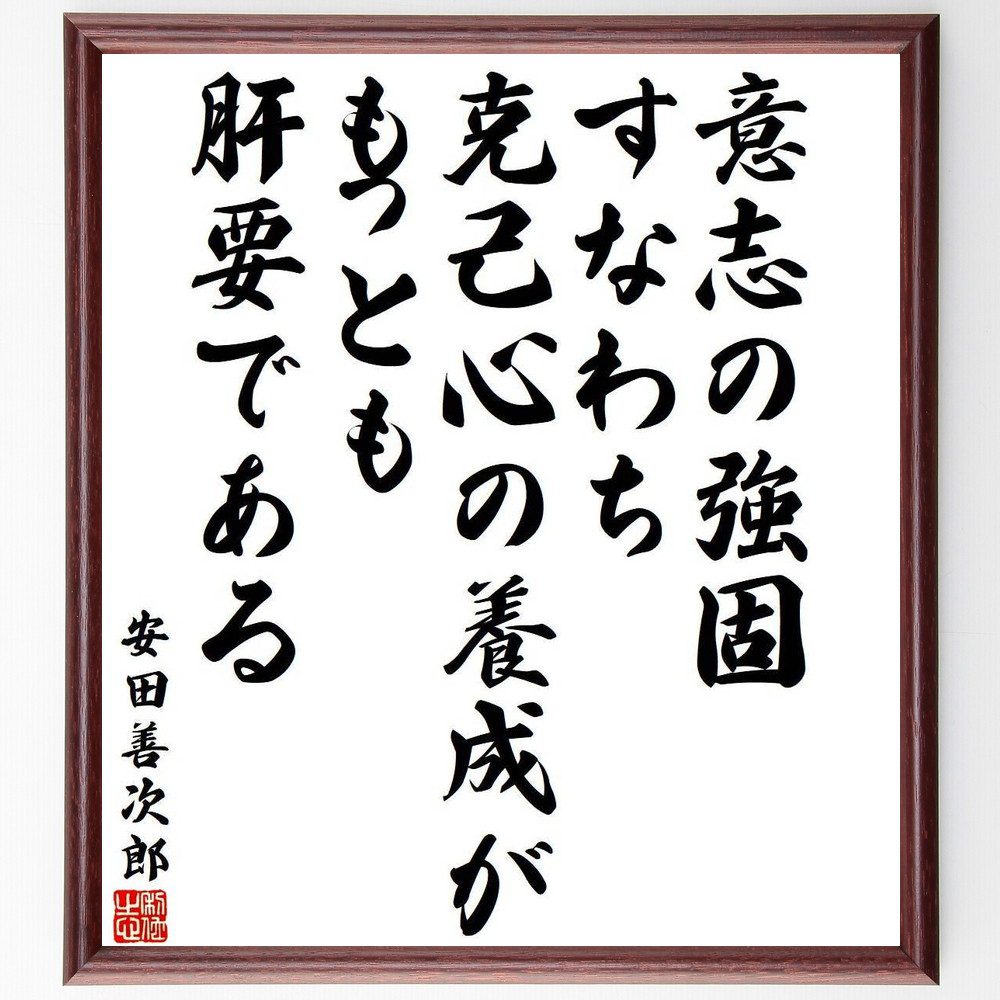 意志の強固
すなわち
克己心の養成が
もっとも
肝要である
安田善次郎